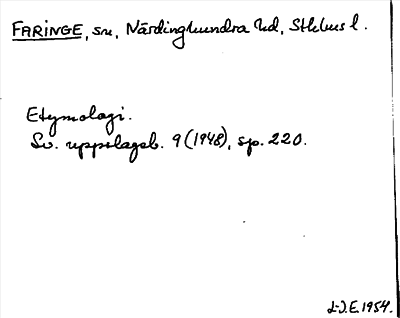 FARINGE, sn, Närdinghundra hd, Sthlms l.
Etymologi.
Sv. uppslagsb. 9 (1948), sp. 220.
L-J.E. 1954.